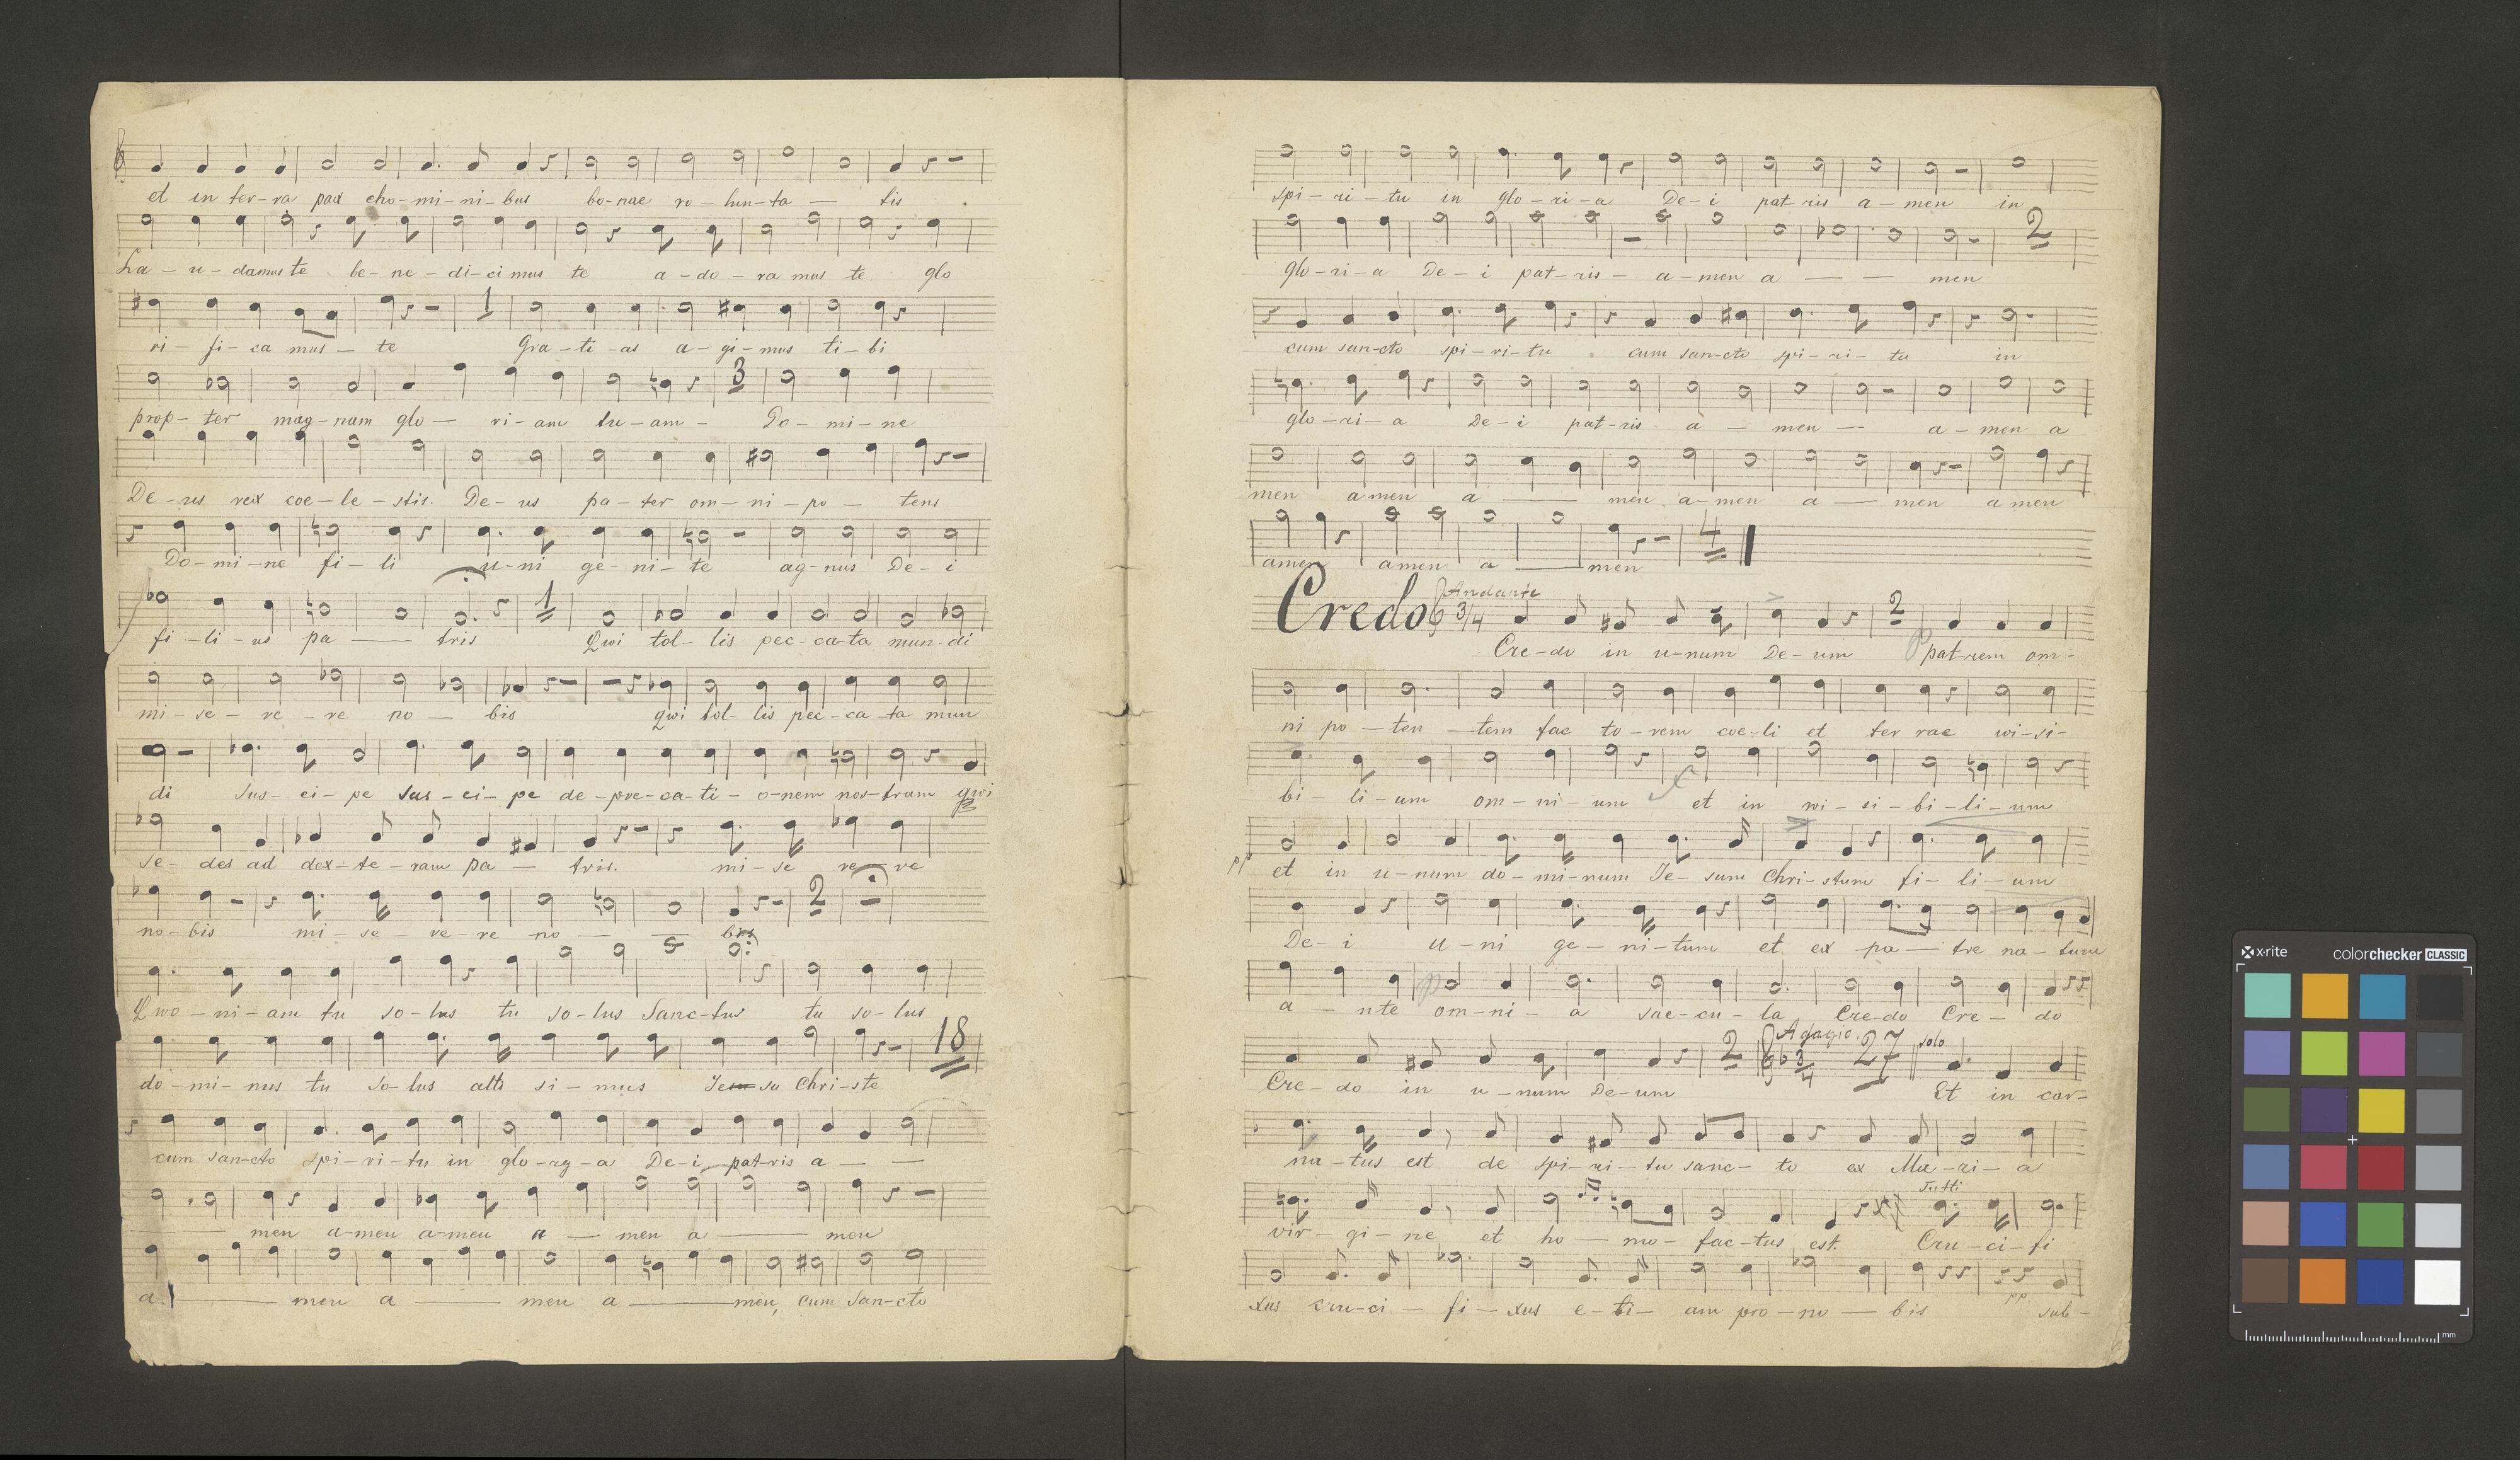 et in ter-ra pax cho-mi-ni-bus bo-nae vo-lun-ta — tis
La-u-damus te be-ne-di-ci mus te a-do-ra mus te glo
1
ri-fi-ca mus-te Gra-ti-as a-gi-mus ti-bi
3
prop-ter mag-nam glo-ri-am tu-am- Do-mi-ne
De-us rex coe-le-stis. De-us pa-ter om-ni-po-tens
Do-mi-ne fi-li u-ni ge-ni-te ag-nus De-i
1
fi-li-us pa — tris Qui tol-lis pec-ca-ta mun-di
mi-se-re-re no-bis qwi tol-lis pec-ca-ta mun
di sus-ci-pe sus-ci-pe de-pre-ca-ti-o-nem nos-tram qwi
se-des ad dex-te-ram pa-tris. mi-se re-re
2
no-bis mi-se-re-re no — — bis
Qwo-ni-am tu so-lus tu so-lus Sanc-tus tu so-lus
18
do-mi-nus tu so-lus alti si-mus Je su Chri-ste
cum san-cto spi-ri-tu in glo-ry-a De-i pat-ris a — —
men a-men a-men a — men a — men
a — men a — men a — men, cum San-cto
spi-ri-tu in glo-ri-a De-i pat-ris a-men in
2
glo-ri-a De-i pat-ris-a-men a — — men
cum san-cto spi-ri-tu cum san-cto spi-ri-tu in
glo-ri-a De-i pat-ris a-men — a-men a
men amen a — men a-men a — men amen
4
amen amen a — men
Credo Andante 3/4 2
Cre-do in u-num De-um P pat-rem om-
ni po-ten-tem fac to-rem coe-li et ter rae wi-si-
bi-li-um om-ni-um et in wi-si-bi-li-um
pp et in u-num do-mi-num Je-sum Chri-stum fi-li-um
De-i u-ni ge-ni-tum et ex pa-tre na-tum
p
a-nte om-ni-a sae-cu-la Cre-do Cre-do
2 Adagio. 3/4 27 solo
Cre-do in u-num De-um Et in car-
na-tus est de spi-ri-tu sanc-to ex Ma-ri-a
Tutti
vir-gi-ne et ho-mo-fac-tus est. Cru-ci-fi
pp
xus cru-ci-fi-xus e-ti-am pro-no-bis sub-
x-rite colorchecker CLASSIC
mm